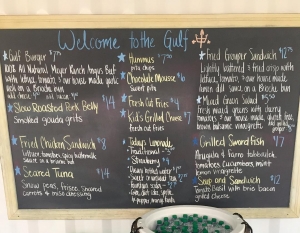 Welcome to the Gulf
Gulf Burger $7.00
All Natural Meyer Ranch Angus Beef with
lettuce, tomato, & our house made garlic
on a Brioche Bun
Slow Roasted Pork Belly $14
Smoked gouda grits
Fried Chicken Sandwich $8
lettuce, tomatoes, spicy buttermilk
Sauce on a brioche bun
Seared Tuna $14
Snow peas, frisee, Shaved
Carrots & miso dressing
Hummus $7
pita chips
Chocolate Mousse $6
Sweet pita
Fresh Cut Fries $4
Kid's Grilled Cheese $7
Fresh Cut Fries
Today's Lemonade
Traditional
Strawberry $4
Sweet or unsweet tea $2
fountain soda
diet coke, coke, sprite,
Fried Grouper Sandwich $12
lightly battered & fried crisp with
lettuce, tomato, & our house made
lemon dill Sauce on a Brioche bun
Mixed Greens Salad $9.50
fresh mixed greens with cherry
tomatoes, our house made
brown balsamic vinaigrette
Grilled Sword Fish $17
Arugula & farro tabbouleh,
tomatoes, cucumbers, mint
lemon vinaigrette
Soup and Sandwich $12
Tomato Basil with brie bacon
grilled cheese